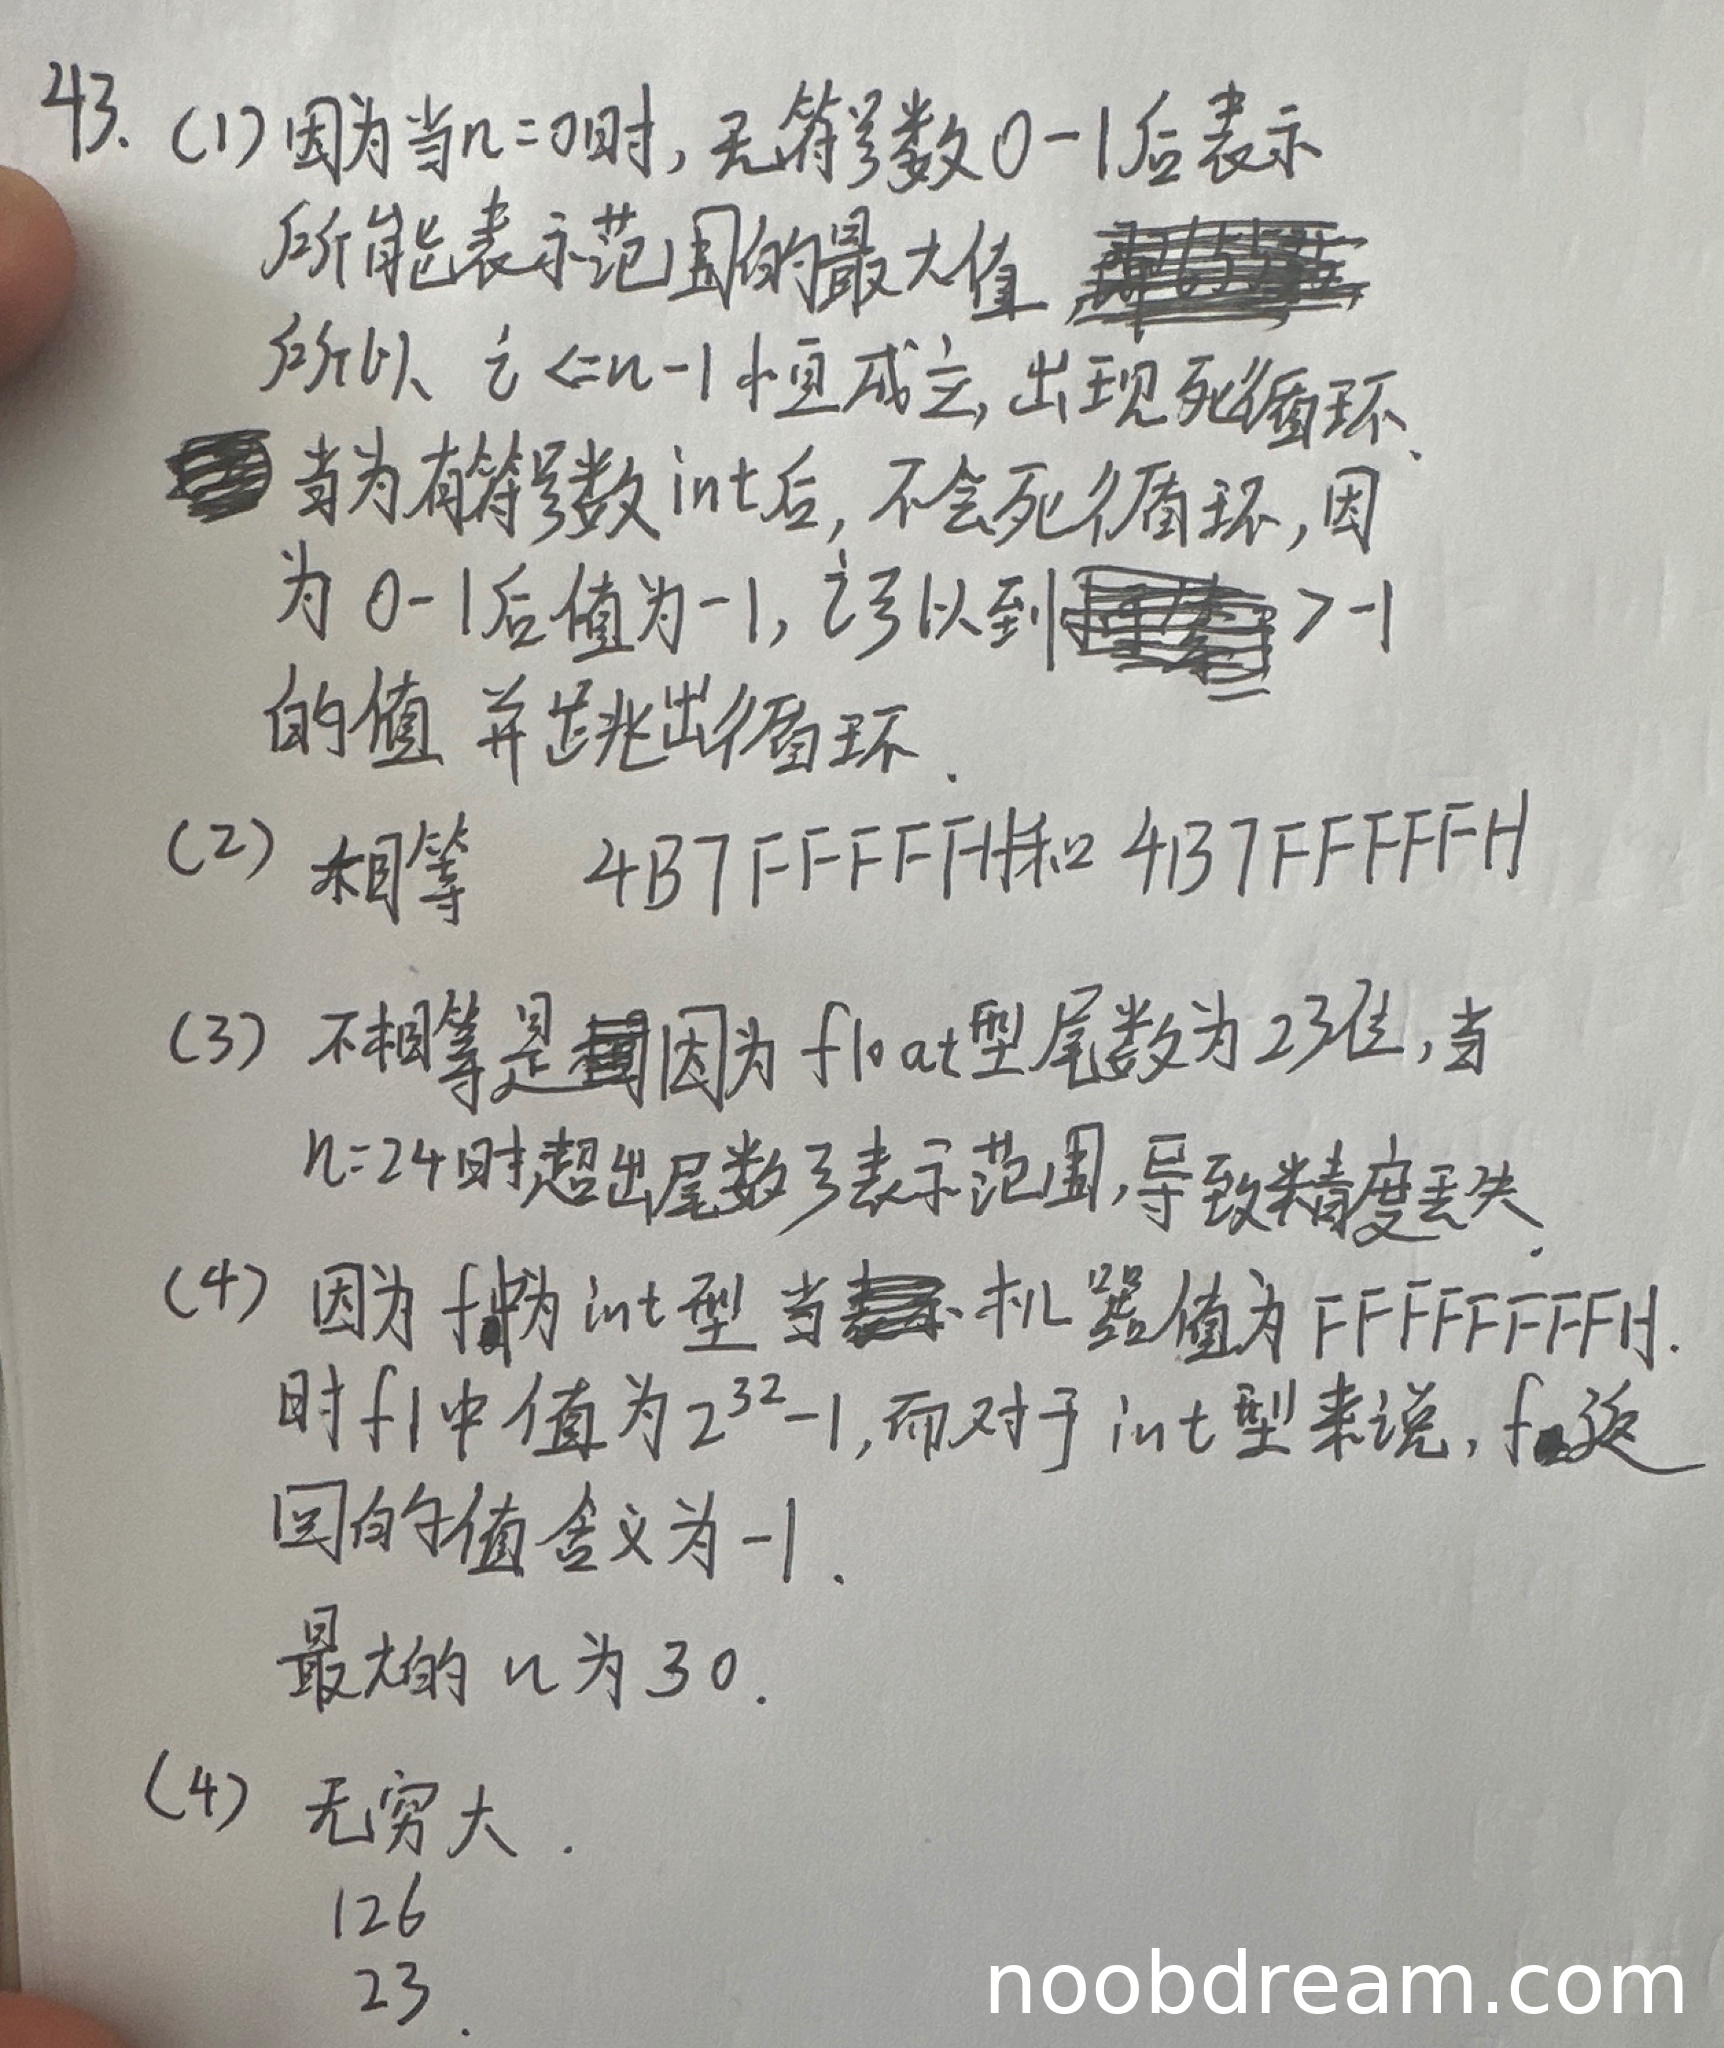 43. (1) 因为当n=0时, 无符号数0-1后表示
所能表示范围的最大值,
所以 i <=n-1 恒成立, 出现死循环.
当为有符号数int后, 不会死循环, 因
为 0-1后值为-1, i可以到 >-1
的值 并跳出循环.
(2) 相等 4B7FFFFFH和 4B7FFFFFH
(3) 不相等是因为float型尾数为23位, 当
n=24时超出尾数可表示范围, 导致精度丢失.
(4) 因为 f 为 int 型 当 机器值为 FFFFFFFFH.
时f1中值为2³²-1, 而对于 int 型来说, f返
回的值含义为-1.
最大的 n 为 30.
(4) 无穷大.
126
23.
noobdream.com